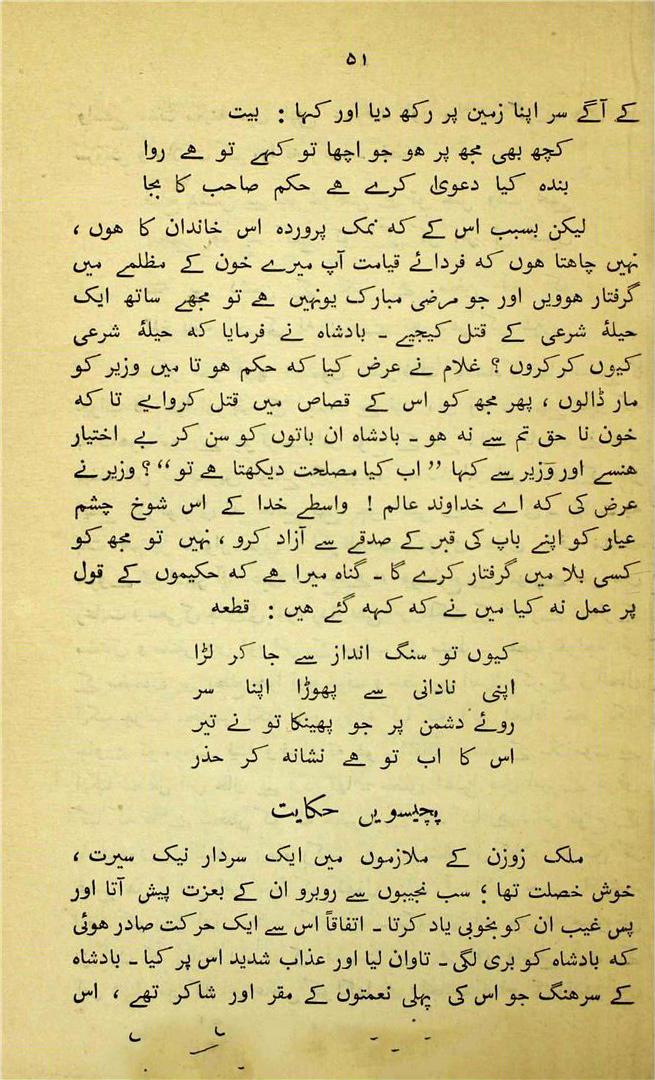 ۵۱
کے آگے سر اپنا زمین پر رکھ دیا اور کہا : بیت
کچھ بھی مجھ پر ھو جو اچھا تو کہے تو ھے روا
بندہ کیا دعویٰ کرے ھے حکم صاحب کا بجا
لیکن بسبب اس کے کہ نمک پروردہ اس خاندان کا ھوں ،
نہیں چاھتا ھوں کہ فردائے قیامت آپ میرے خون کے مظلمے میں
گرفتار ھوویں اور جو مرضی مبارک یونہیں ھے تو مجھے ساتھ ایک
حیلۂ شرعی کے قتل کیجیے ۔ بادشاہ نے فرمایا کہ حیلۂ شرعی
کیوں کر کروں ؟ غلام نے عرض کیا کہ حکم ھو تا میں وزیر کو
مار ڈالوں ، پھر مجھ کو اس کے قصاص میں قتل کروایے تا کہ
خون نا حق تم سے نہ ھو ۔ بادشاہ ان باتوں کو سن کر بے اختیار
ھنسے اور وزیر سے کہا ”اب کیا مصلحت دیکھتا ھے تو“ ؟ وزیر نے
عرض کی کہ اے خداوند عالم ! واسطے خدا کے اس شوخ چشم
عیار کو اپنے باپ کی قبر کے صدقے سے آزاد کرو ، نہیں تو مجھ کو
کسی بلا میں گرفتار کرے گا ۔ گناہ میرا ھے کہ حکیموں کے قول
پر عمل نہ کیا میں نے کہ کہہ گئے ھیں : قطعہ
کیوں تو سنگ انداز سے جا کر لڑا
اپنی نادانی سے پھوڑا اپنا سر
روئے دشمن پر جو پھینکا تو نے تیر
اس کا اب تو ھے نشانہ کر حذر
پچیسویں حکایت
ملک زوزن کے ملازموں میں ایک سردار نیک سیرت ،
خوش خصلت تھا ؛ سب نجیبوں سے روبرو ان کے بعزت پیش آتا اور
پس غیب ان کو بخوبی یاد کرتا ۔ اتفاقاً اس سے ایک حرکت صادر ھوئی
کہ بادشاہ کو بری لگی ۔ تاوان لیا اور عذاب شدید اس پر کیا ۔ بادشاہ
کے سرھنگ جو اس کی پہلی نعمتوں کے مقر اور شاکر تھے ، اس